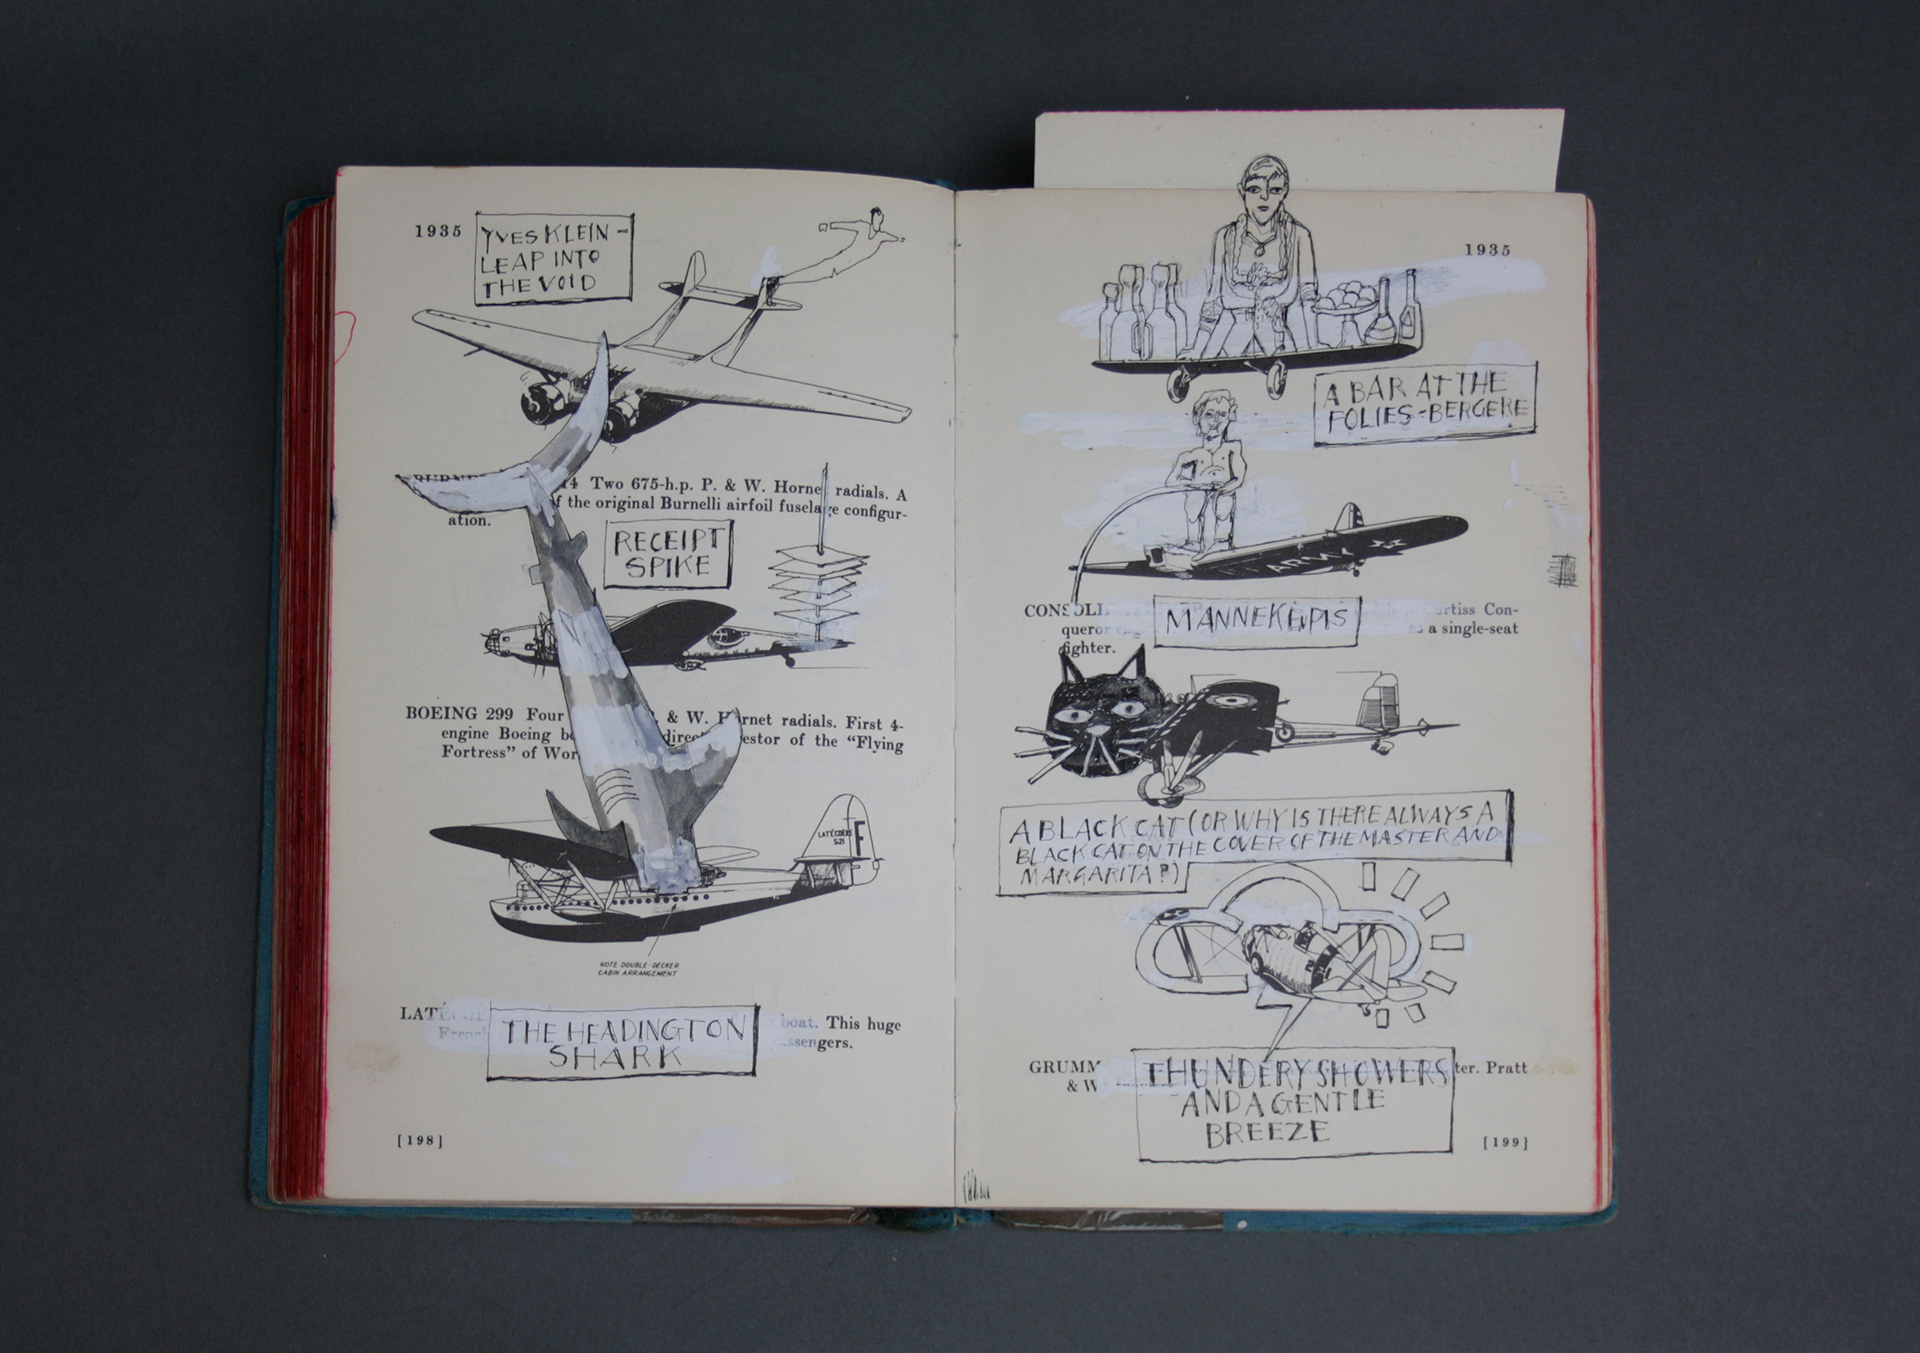 1935
YVES KLEIN -
LEAP INTO
THE VOID
14 Two 675-h.p. P. & W. Hornet radials. A
of the original Burnelli airfoil fuselage configur-
ation.
RECEIPT
SPIKE
BOEING 299 Four & W. Hornet radials. First 4-
engine Boeing direct of the "Flying
Fortress" of
LATÉCOÈRE
521
F
NOTE DOUBLE-DECKER
CABIN ARRANGEMENT
boat. This huge
French
THE HEADINGTON
SHARK
[198]
1935
A BAR AT THE
FOLIES-BERGERE
ARMY
MANNEKENPIS
Curtiss Con-
queror as a single-seat
fighter.
A BLACK CAT (OR WHY IS THERE ALWAYS A
BLACK CAT ON THE COVER OF THE MASTER AND
MARGARITA?)
Pratt
& W
THUNDERY SHOWERS
AND A GENTLE
BREEZE
[199]